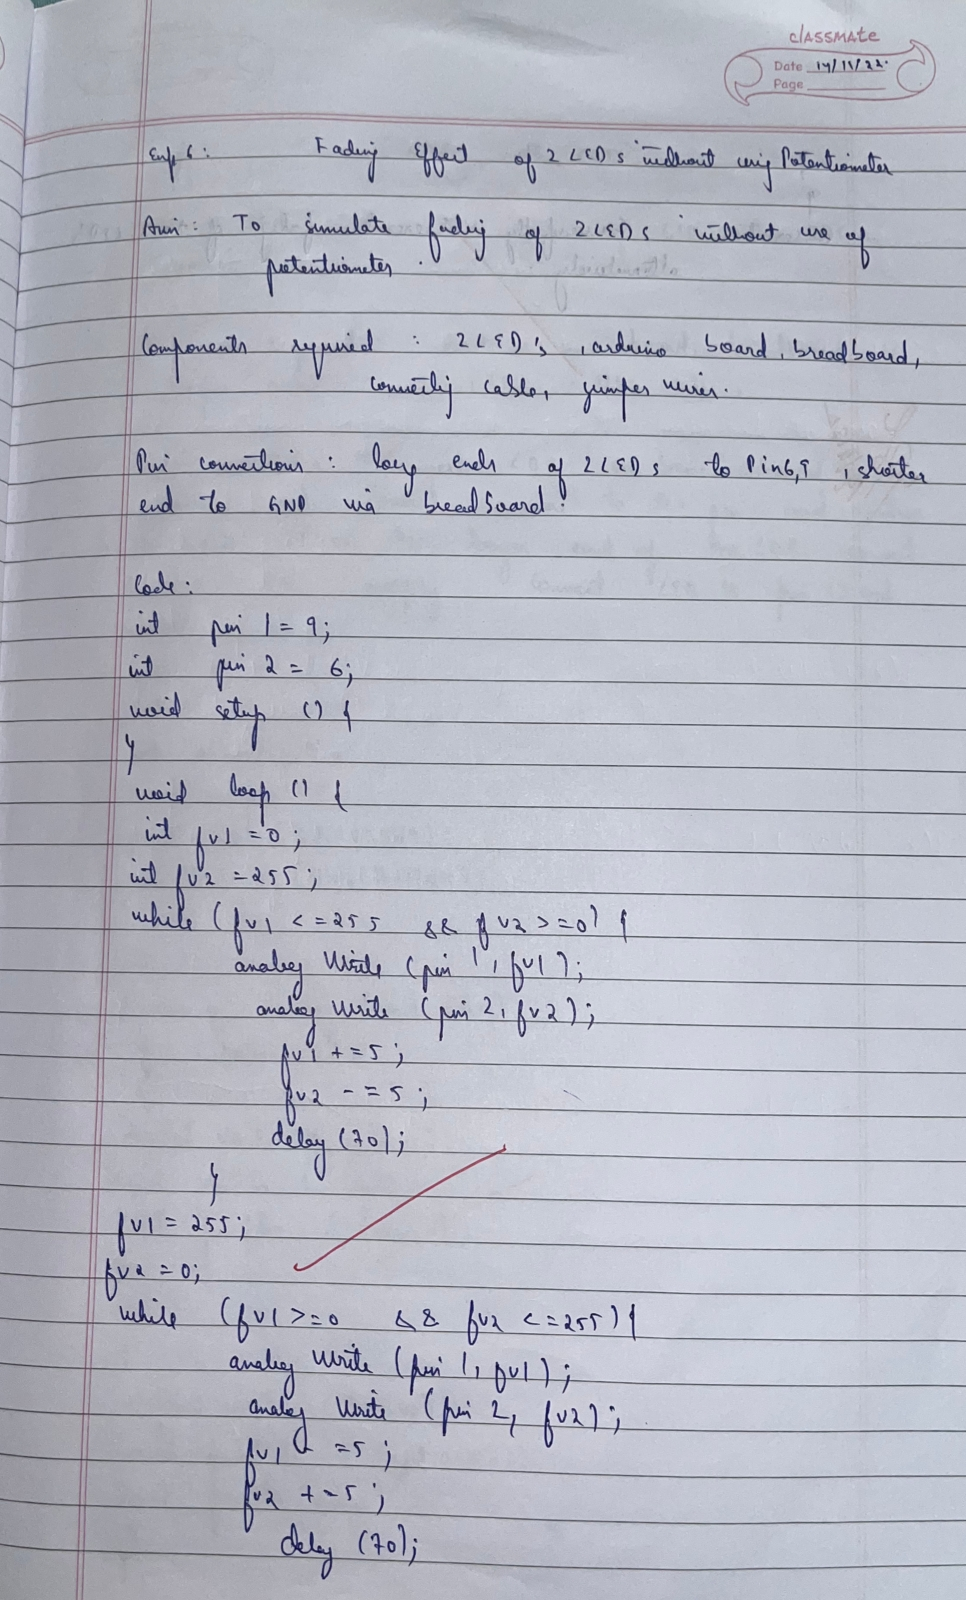 classmate
Date 14/11/22.
Page
Exp 6: Fading Effect of 2 LEDs without using Potentiometer
Aim: To simulate fading of 2 LEDs without use of
potentiometer.
Components required : 2 LED's, arduino board, breadboard,
connecting cable, jumper wires.
Pin connections : long ends of 2 LEDs to Pin 6,9, shorter
end to GND via breadboard.
Code:
int pin 1 = 9;
int pin 2 = 6;
void setup () {
}
void loop () {
int fv1 = 0;
int fv2 = 255;
while (fv1 <= 255 && fv2 >= 0) {
analog Write (pin 1, fv1);
analog Write (pin 2, fv2);
fv1 += 5;
fv2 -= 5;
delay (70);
}
fv1 = 255;
fv2 = 0;
while (fv1 >= 0 && fv2 <= 255) {
analog Write (pin 1, fv1);
analog Write (pin 2, fv2);
fv1 -= 5;
fv2 += 5;
delay (70);